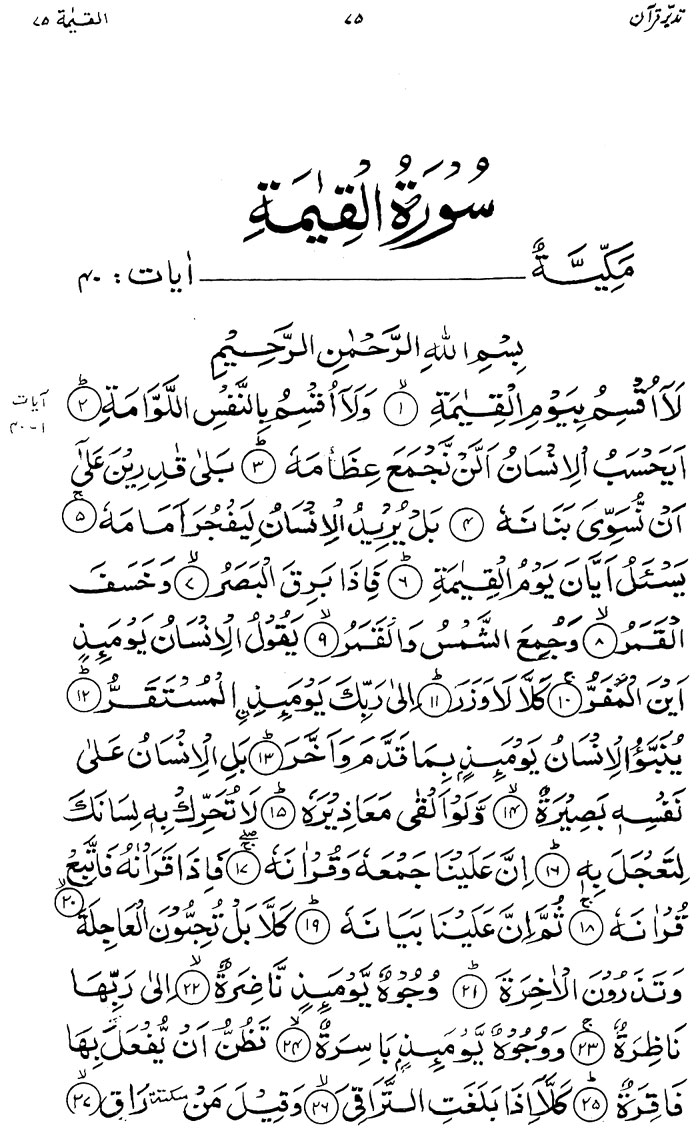 تدبّرِ قرآن ۷۵ القیٰمة ۷۵
سُوۡرَةُ الۡقِيٰمَةِ
مَكِّيَّةٌ اٰیات : ۴۰
بِسۡمِ اللهِ الرَّحۡمٰنِ الرَّحِيۡمِ
لَاۤ اُقۡسِمُ بِيَوۡمِ الۡقِيٰمَةِ ۙ﴿۱﴾ وَلَاۤ اُقۡسِمُ بِالنَّفۡسِ اللَّوَّامَةِ ؕ﴿۲﴾
آیات
۱-۴۰
اَيَحۡسَبُ الۡاِنۡسَانُ اَلَّنۡ نَّجۡمَعَ عِظَامَهٗ ؕ﴿۳﴾ بَلٰى قٰدِرِيۡنَ عَلٰٓى
اَنۡ نُّسَوِّىَ بَنَانَهٗ ﴿۴﴾ بَلۡ يُرِيۡدُ الۡاِنۡسَانُ لِيَفۡجُرَ اَمَامَهٗ ۚ﴿۵﴾
يَسۡـَٔلُ اَيَّانَ يَوۡمُ الۡقِيٰمَةِ ؕ﴿۶﴾ فَاِذَا بَرِقَ الۡبَصَرُ ۙ﴿۷﴾ وَخَسَفَ
الۡقَمَرُ ۙ﴿۸﴾ وَجُمِعَ الشَّمۡسُ وَالۡقَمَرُ ۙ﴿۹﴾ يَقُوۡلُ الۡاِنۡسَانُ يَوۡمَئِذٍ
اَيۡنَ الۡمَفَرُّ ۚ﴿۱۰﴾ كَلَّا لَا وَزَرَ ؕ﴿۱۱﴾ اِلٰى رَبِّكَ يَوۡمَئِذِ ۨالۡمُسۡتَقَرُّ ؕ﴿۱۲﴾
يُنَبَّؤُا الۡاِنۡسَانُ يَوۡمَئِذٍۢ بِمَا قَدَّمَ وَاَخَّرَ ؕ﴿۱۳﴾ بَلِ الۡاِنۡسَانُ عَلٰى
نَفۡسِهٖ بَصِيۡرَةٌ ۙ﴿۱۴﴾ وَّلَوۡ اَلۡقٰى مَعَاذِيۡرَهٗ ؕ﴿۱۵﴾ لَا تُحَرِّكۡ بِهٖ لِسَانَكَ
لِتَعۡجَلَ بِهٖ ؕ﴿۱۶﴾ اِنَّ عَلَيۡنَا جَمۡعَهٗ وَقُرۡاٰنَهٗ ۚۖ﴿۱۷﴾ فَاِذَا قَرَاۡنٰهُ فَاتَّبِعۡ
قُرۡاٰنَهٗ ۚ﴿۱۸﴾ ثُمَّ اِنَّ عَلَيۡنَا بَيَانَهٗ ؕ﴿۱۹﴾ كَلَّا بَلۡ تُحِبُّوۡنَ الۡعَاجِلَةَ ۙ﴿۲۰﴾
وَتَذَرُوۡنَ الۡاٰخِرَةَ ؕ﴿۲۱﴾ وُجُوۡهٌ يَّوۡمَئِذٍ نَّاضِرَةٌ ۙ﴿۲۲﴾ اِلٰى رَبِّهَا
نَاظِرَةٌ ۚ﴿۲۳﴾ وَوُجُوۡهٌ يَّوۡمَئِذٍۢ بَاسِرَةٌ ۙ﴿۲۴﴾ تَظُنُّ اَنۡ يُّفۡعَلَ بِهَا
فَاقِرَةٌ ؕ﴿۲۵﴾ كَلَّاۤ اِذَا بَلَغَتِ التَّرَاقِىَ ۙ﴿۲۶﴾ وَقِيۡلَ مَنۡ سكتة رَاقٍ ۙ﴿۲۷﴾